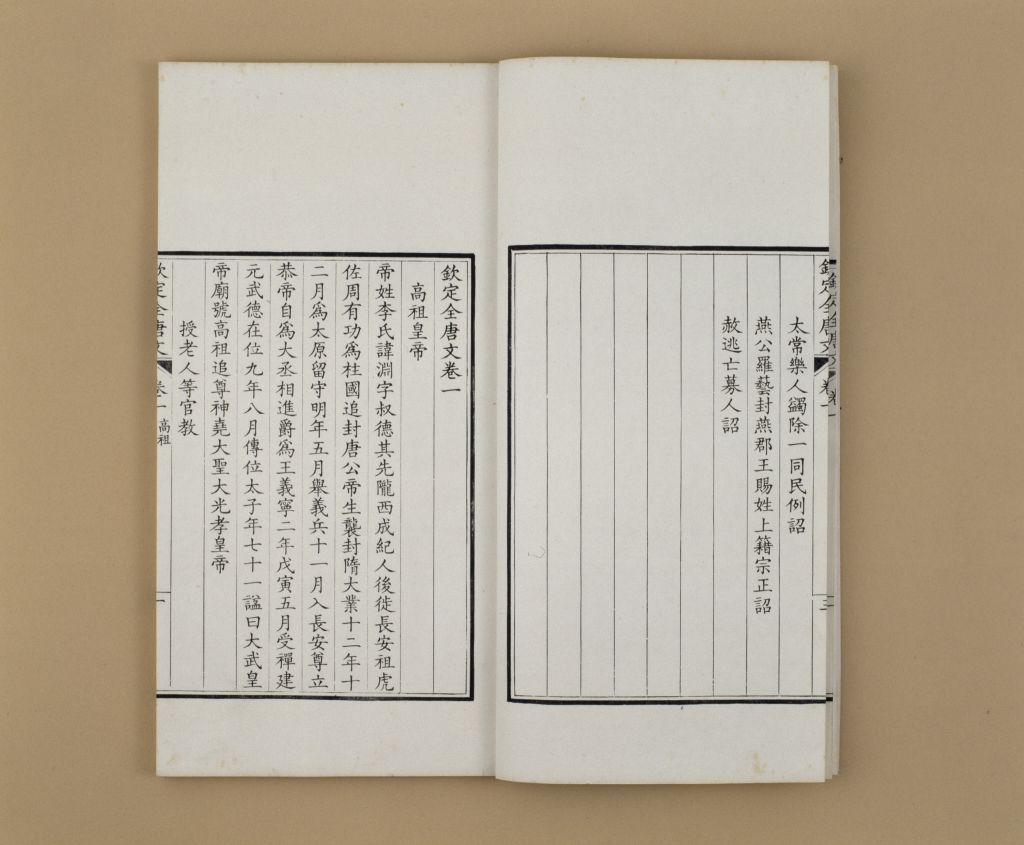 太常樂人蠲除一同民例詔
燕公羅藝封燕郡王賜姓上籍宗正詔
赦逃亡募人詔
欽定全唐文 卷一 三
欽定全唐文卷一
高祖皇帝
帝姓李氏諱淵字叔德其先隴西成紀人後徙長安祖虎
佐周有功爲柱國追封唐公帝生襲封隋大業十二年十
二月爲太原留守明年五月舉義兵十一月入長安尊立
恭帝自爲大丞相進爵爲王義寧二年戊寅五月受禪建
元武德在位九年八月傳位太子年七十一諡曰大武皇
帝廟號高祖追尊神堯大聖大光孝皇帝
授老人等官教
欽定全唐文 卷一 高祖 一